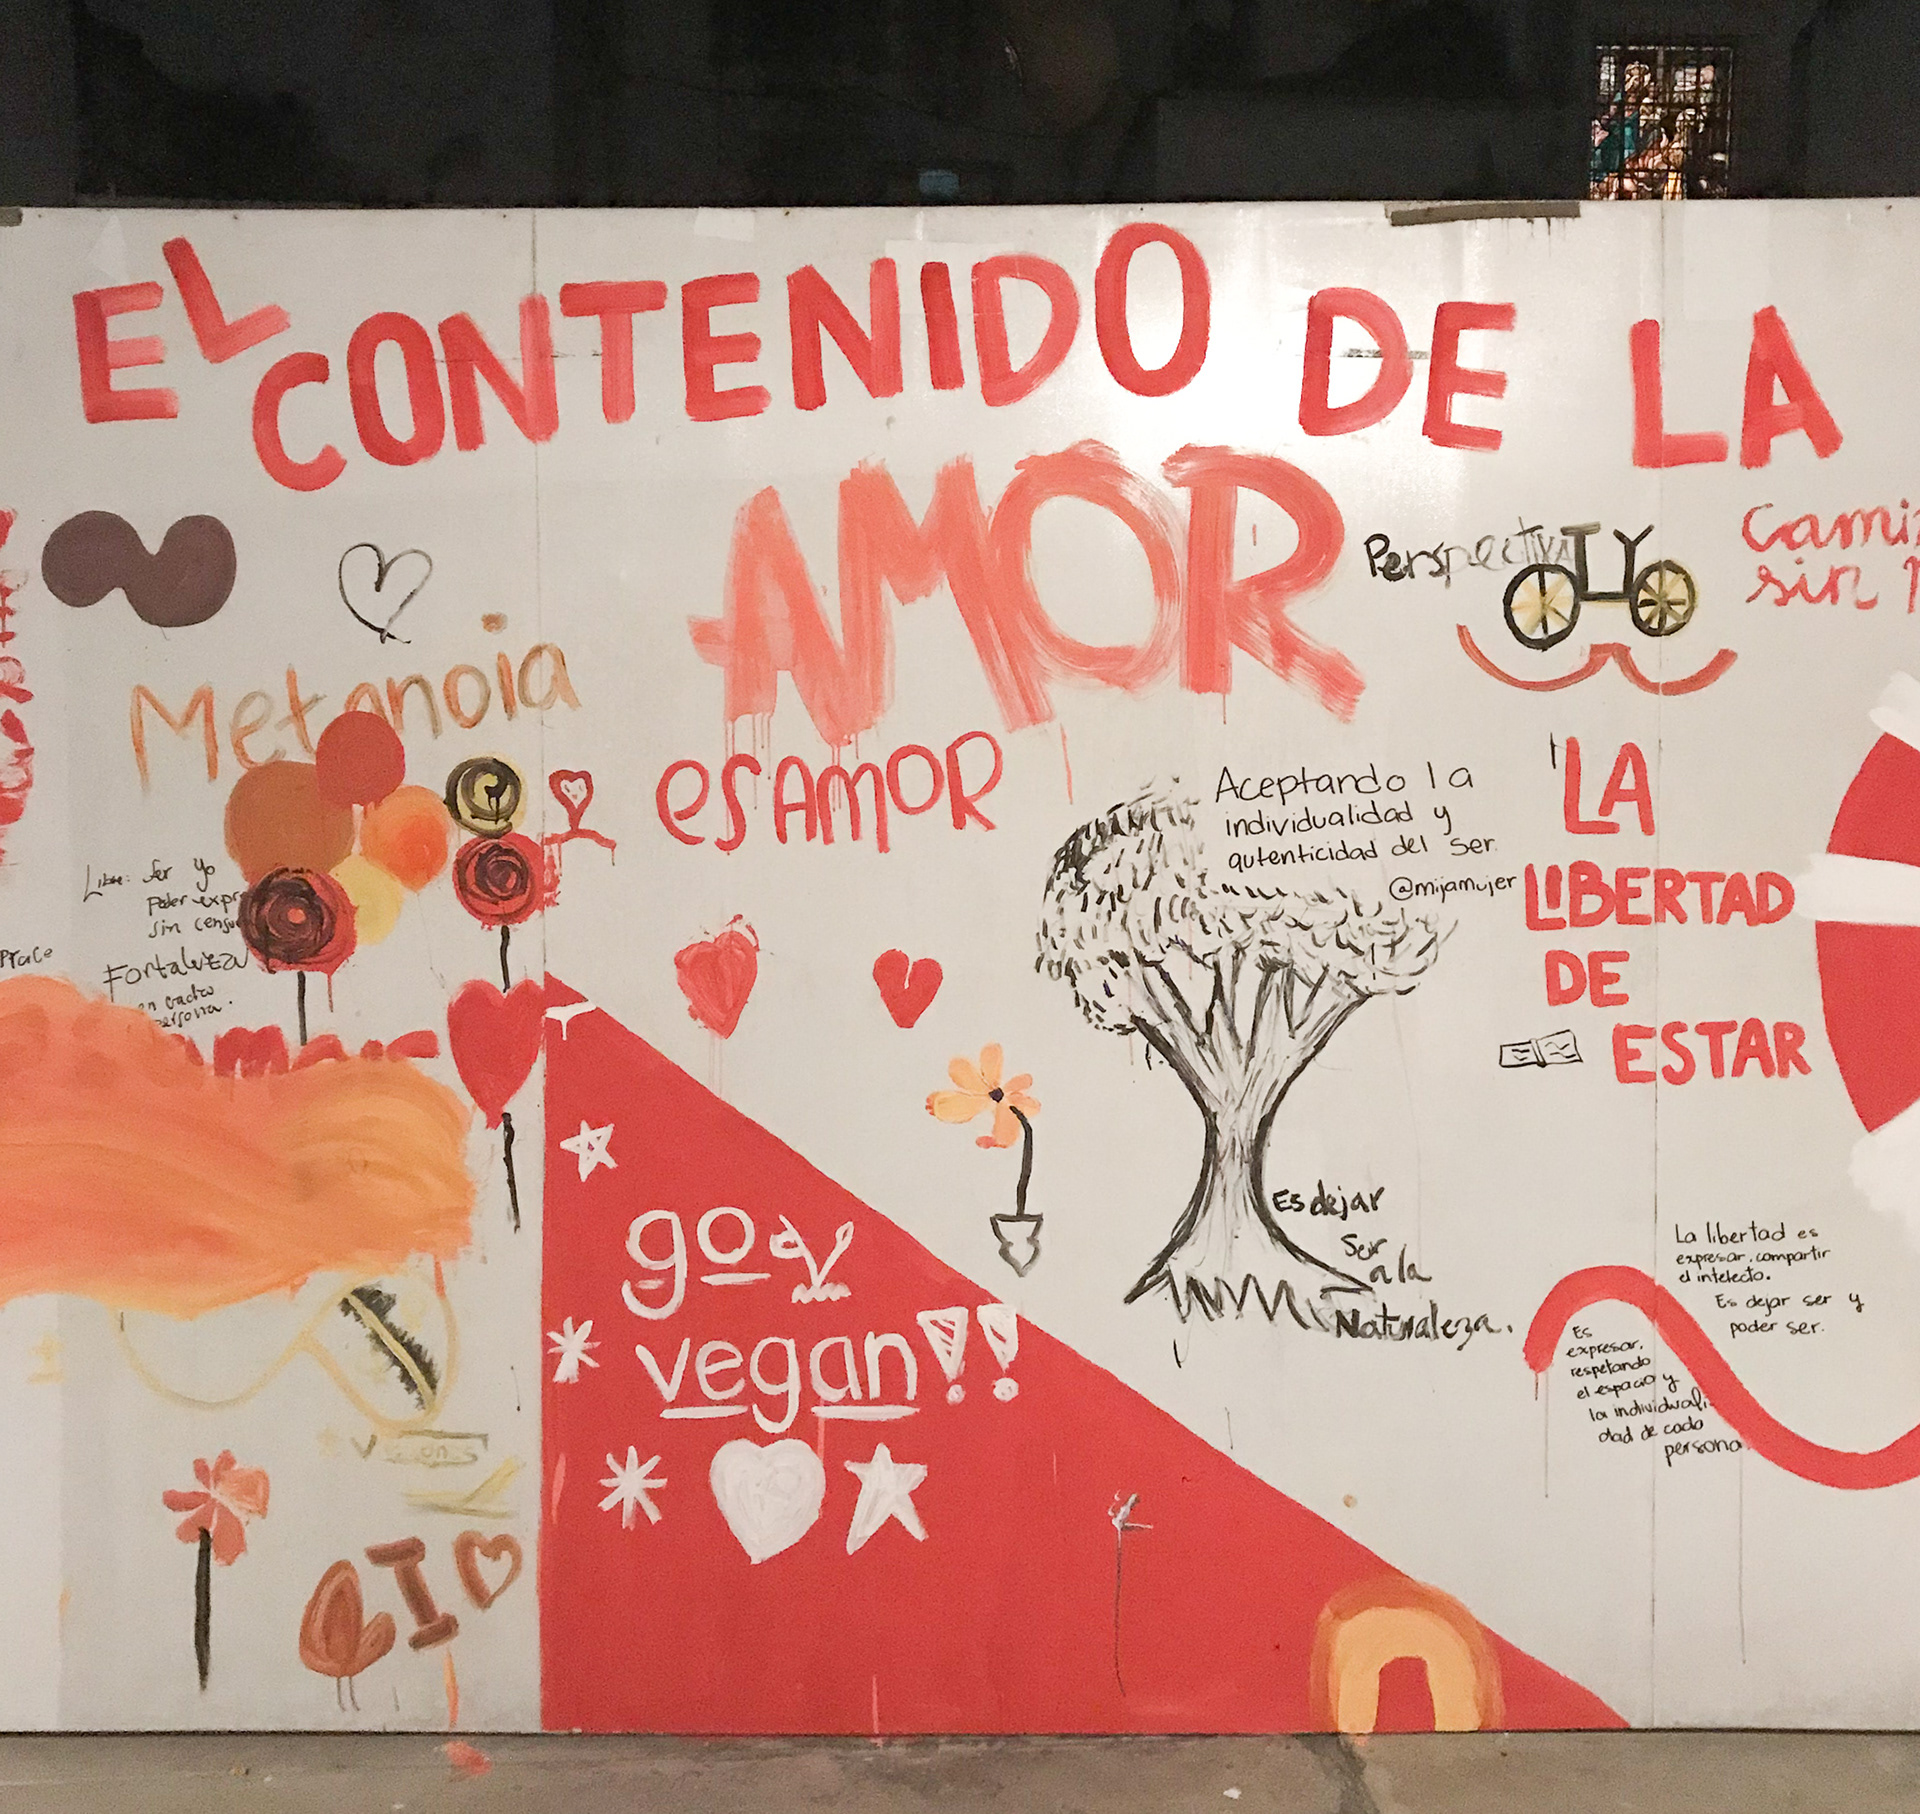 EL CONTENIDO DE LA
AMOR
es AMOR
Metanoia
Perspectiva
Cami
sin
Aceptando la
individualidad y
autenticidad del ser
@mijamujer
LA
LIBERTAD
DE
ESTAR
Libre: Ser yo
poder expr
sin censu
Fortaleza
en cada
persona.
Amor
go
vegan!!
Es dejar
Ser
a la
Naturaleza.
La libertad es
expresar, compartir
el intelecto.
Es dejar ser y
poder ser.
Es
expresar,
respetando
el espacio y
la individuali-
dad de cada
persona.